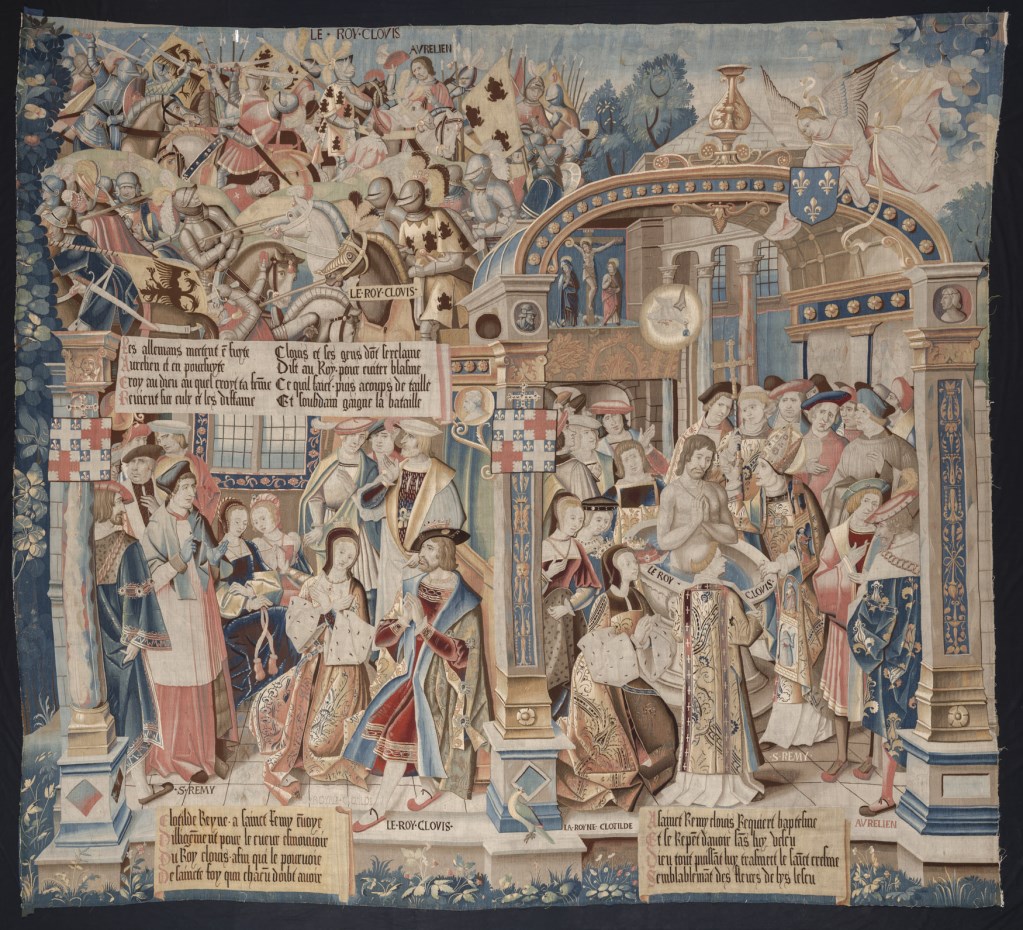 LE · ROY · CLOVIS
AVRELIEN
LE·ROY·CLOVIS·
Les allemans mettent ē fuyte
Aurelien et en poursuyte
Croy au dieu au quel croyt ta feme
Clouis et ses gens dōt se reclame
Dist au Roy pour euiter blasme
Ce quil faict puis acoups de taille
Et soubdain gaigne la bataille
LE·ROY
CLOVIS·
·S·REMY
LE·ROY·CLOVIS·
LA·ROYNE·CLOTILDE
·S·REMY
AVRELIEN
Clotilde Reyne a sainct Remy enuoye
Dilligemmēt pour le cueur esmouuoir
Du Roy clouis afin qui le pouruoye
De saincte foy que chacū doibt auoir
A sainct Remy clouis Requiert baptesme
Et se Repēt dauoir sās luy vescu
Dieu tout puissāt luy trāsmect le sainct cresme
Semblablemāt des fleures de lys lescu